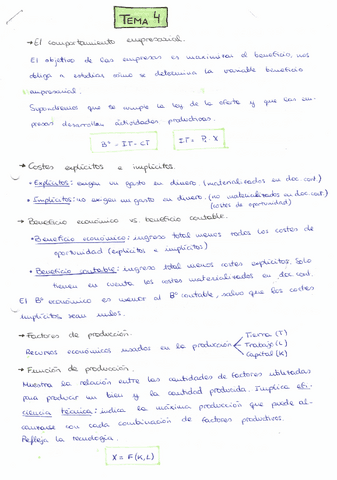 TEMA 4
→ El comportamiento empresarial.
El objetivo de las empresas es maximizar el beneficio, nos
obliga a estudiar cómo se determina la variable beneficio
empresarial.
Supondremos que se cumple la ley de la oferta y que las em-
presas desarrollan actividades productivas.
Bº = IT - CT    IT = P · X
→ Costes explícitos e implícitos.
• Explícitos: exigen un gasto en dinero (materializados en doc. cont.)
• Implícitos: no exigen un gasto en dinero. (no materializados en doc. cont.)
(costes de oportunidad)
→ Beneficio económico vs. beneficio contable.
• Beneficio económico: ingreso total menos todos los costes de
oportunidad (explícitos e implícitos)
• Beneficio contable: ingreso total menos costes explícitos. Solo
tienen en cuenta los costes materializados en doc. cont.
El Bº económico es menor al Bº contable, salvo que los costes
implícitos sean nulos.
→ Factores de producción.
Recursos económicos usados en la producción
Tierra (T)
Trabajo (L)
Capital (K)
→ Función de producción.
Muestra la relación entre las cantidades de factores utilizadas
para producir un bien y la cantidad producida. Implica efi-
ciencia técnica: indica la máxima producción que puede al-
canzarse con cada combinación de factores productivos.
Refleja la tecnología.
X = F(K, L)